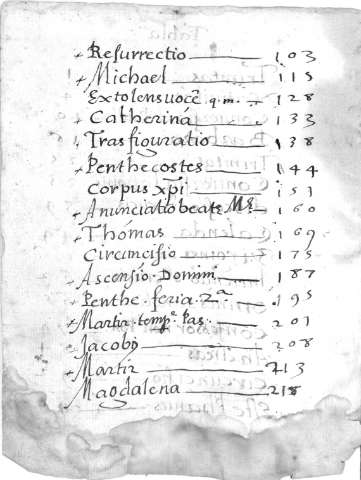 + Resurrectio 103
+ Michael 115
Extolens uocē q.m. 128
+ Catherina 133
Trasfiguratio 138
+ Penthecostes 144
Corpus xpi 151
+ Anunciatio beatę Mę 160
+ Thomas 169
Circumcisio 175
+ Ascensio Domini 187
+ Penthe. feria 2ᵃ 195
+ Martir temp.ᵉ Pas. 201
+ Jacoby 208
+ Martir 213
+ Magdalena 218